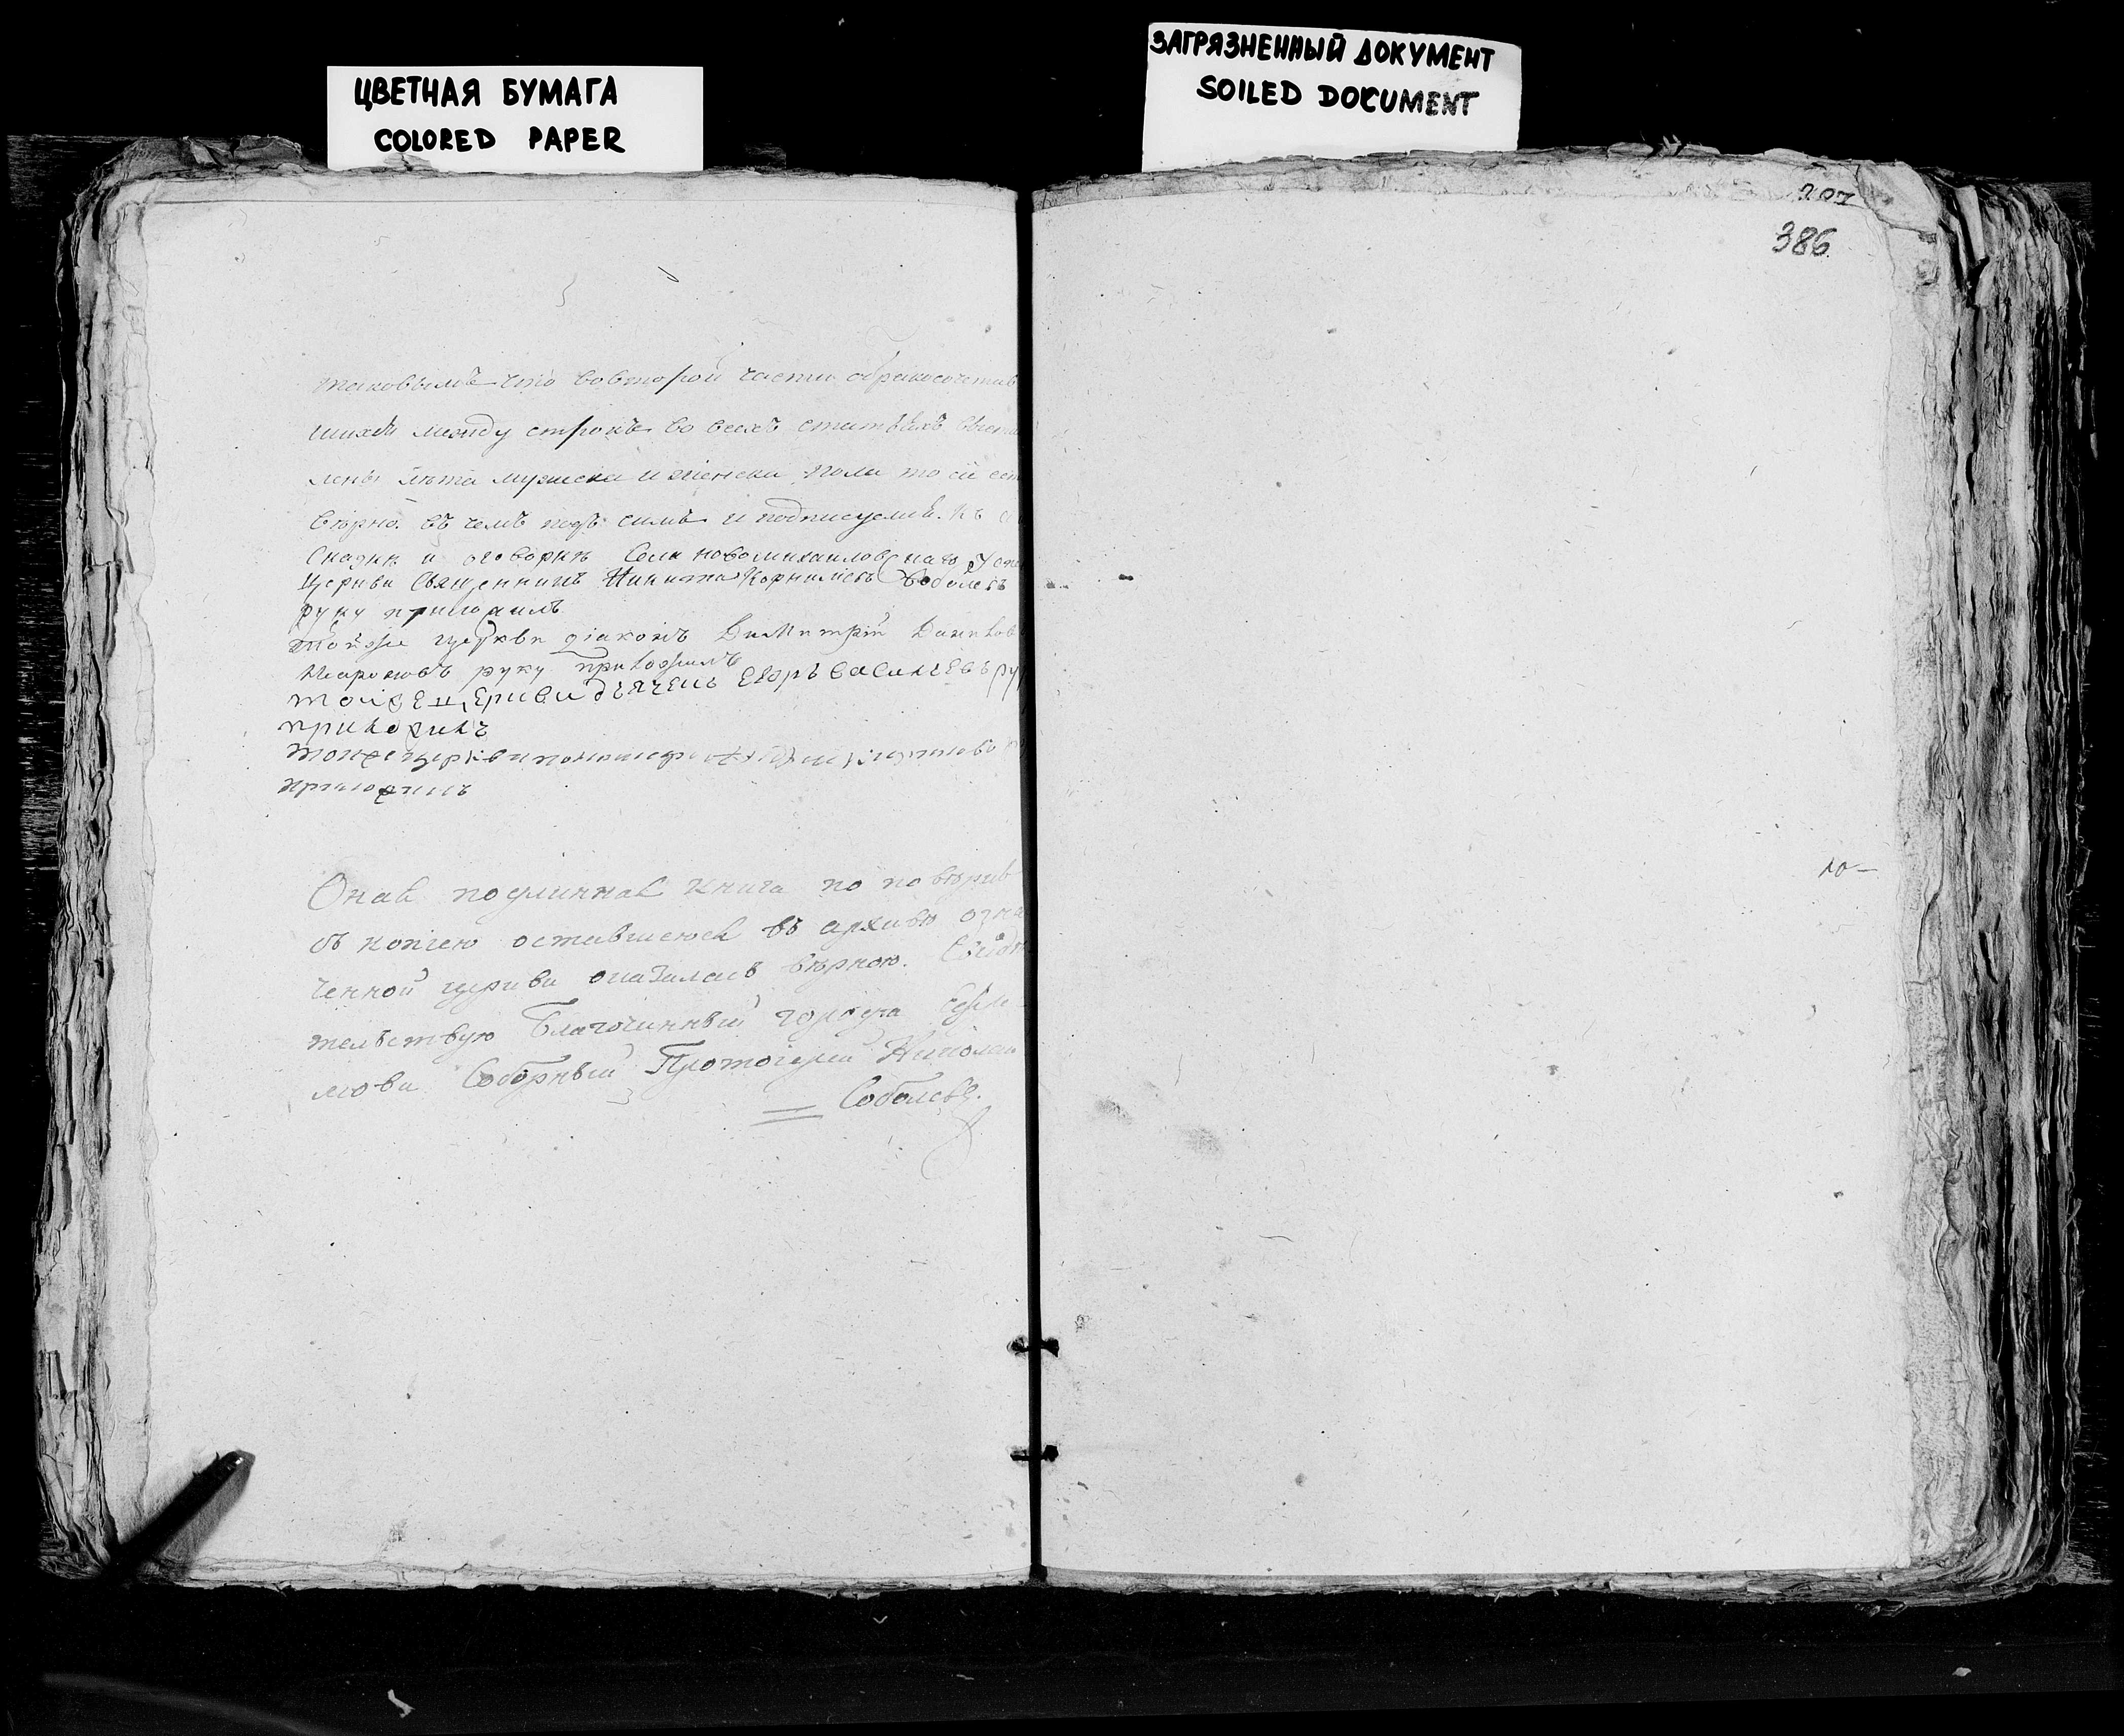 ЦВЕТНАЯ БУМАГА
COLORED PAPER
ЗАГРЯЗНЕННЫЙ ДОКУМЕНТ
SOILED DOCUMENT
таковымъ что вовторой части обракосочетав
шихся между строкъ во всехъ статьяхъ выста
лены лѣта мужеска и женска пола то сіе ест
вѣрно. въ чемъ подъ симъ и подписуемся. Къ
Сказкѣ и оговоркѣ Села новомихаиловскаго Успе
Церкви Священникъ Никита Корнилiевъ Соболевъ
руку приложилъ
Тойже церкви діаконъ Димитрій
руку приложилъ
тойже церкви дьячекъ Егоръ Васильевъ ру
приложилъ
тойже церкви пономарь
приложилъ
Оная подлинная Книга по повѣрив
съ копiею оставшеюся въ архивѣ озна
ченной церкви оказалась вѣрною. Свидѣ
тельствую Благочинный города
мова Соборный Протоiерей Николай
Соболевъ.
386
10-